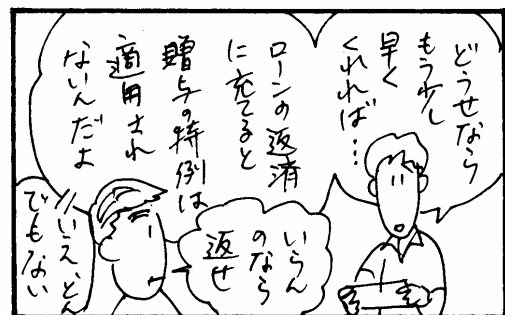 どうせなら
もう少し
早く
くれれば…
ローンの返済
に充てると
贈与の特例は
適用され
ないんだよ
いらん
のなら
返せ
いいえ、とん
でもない